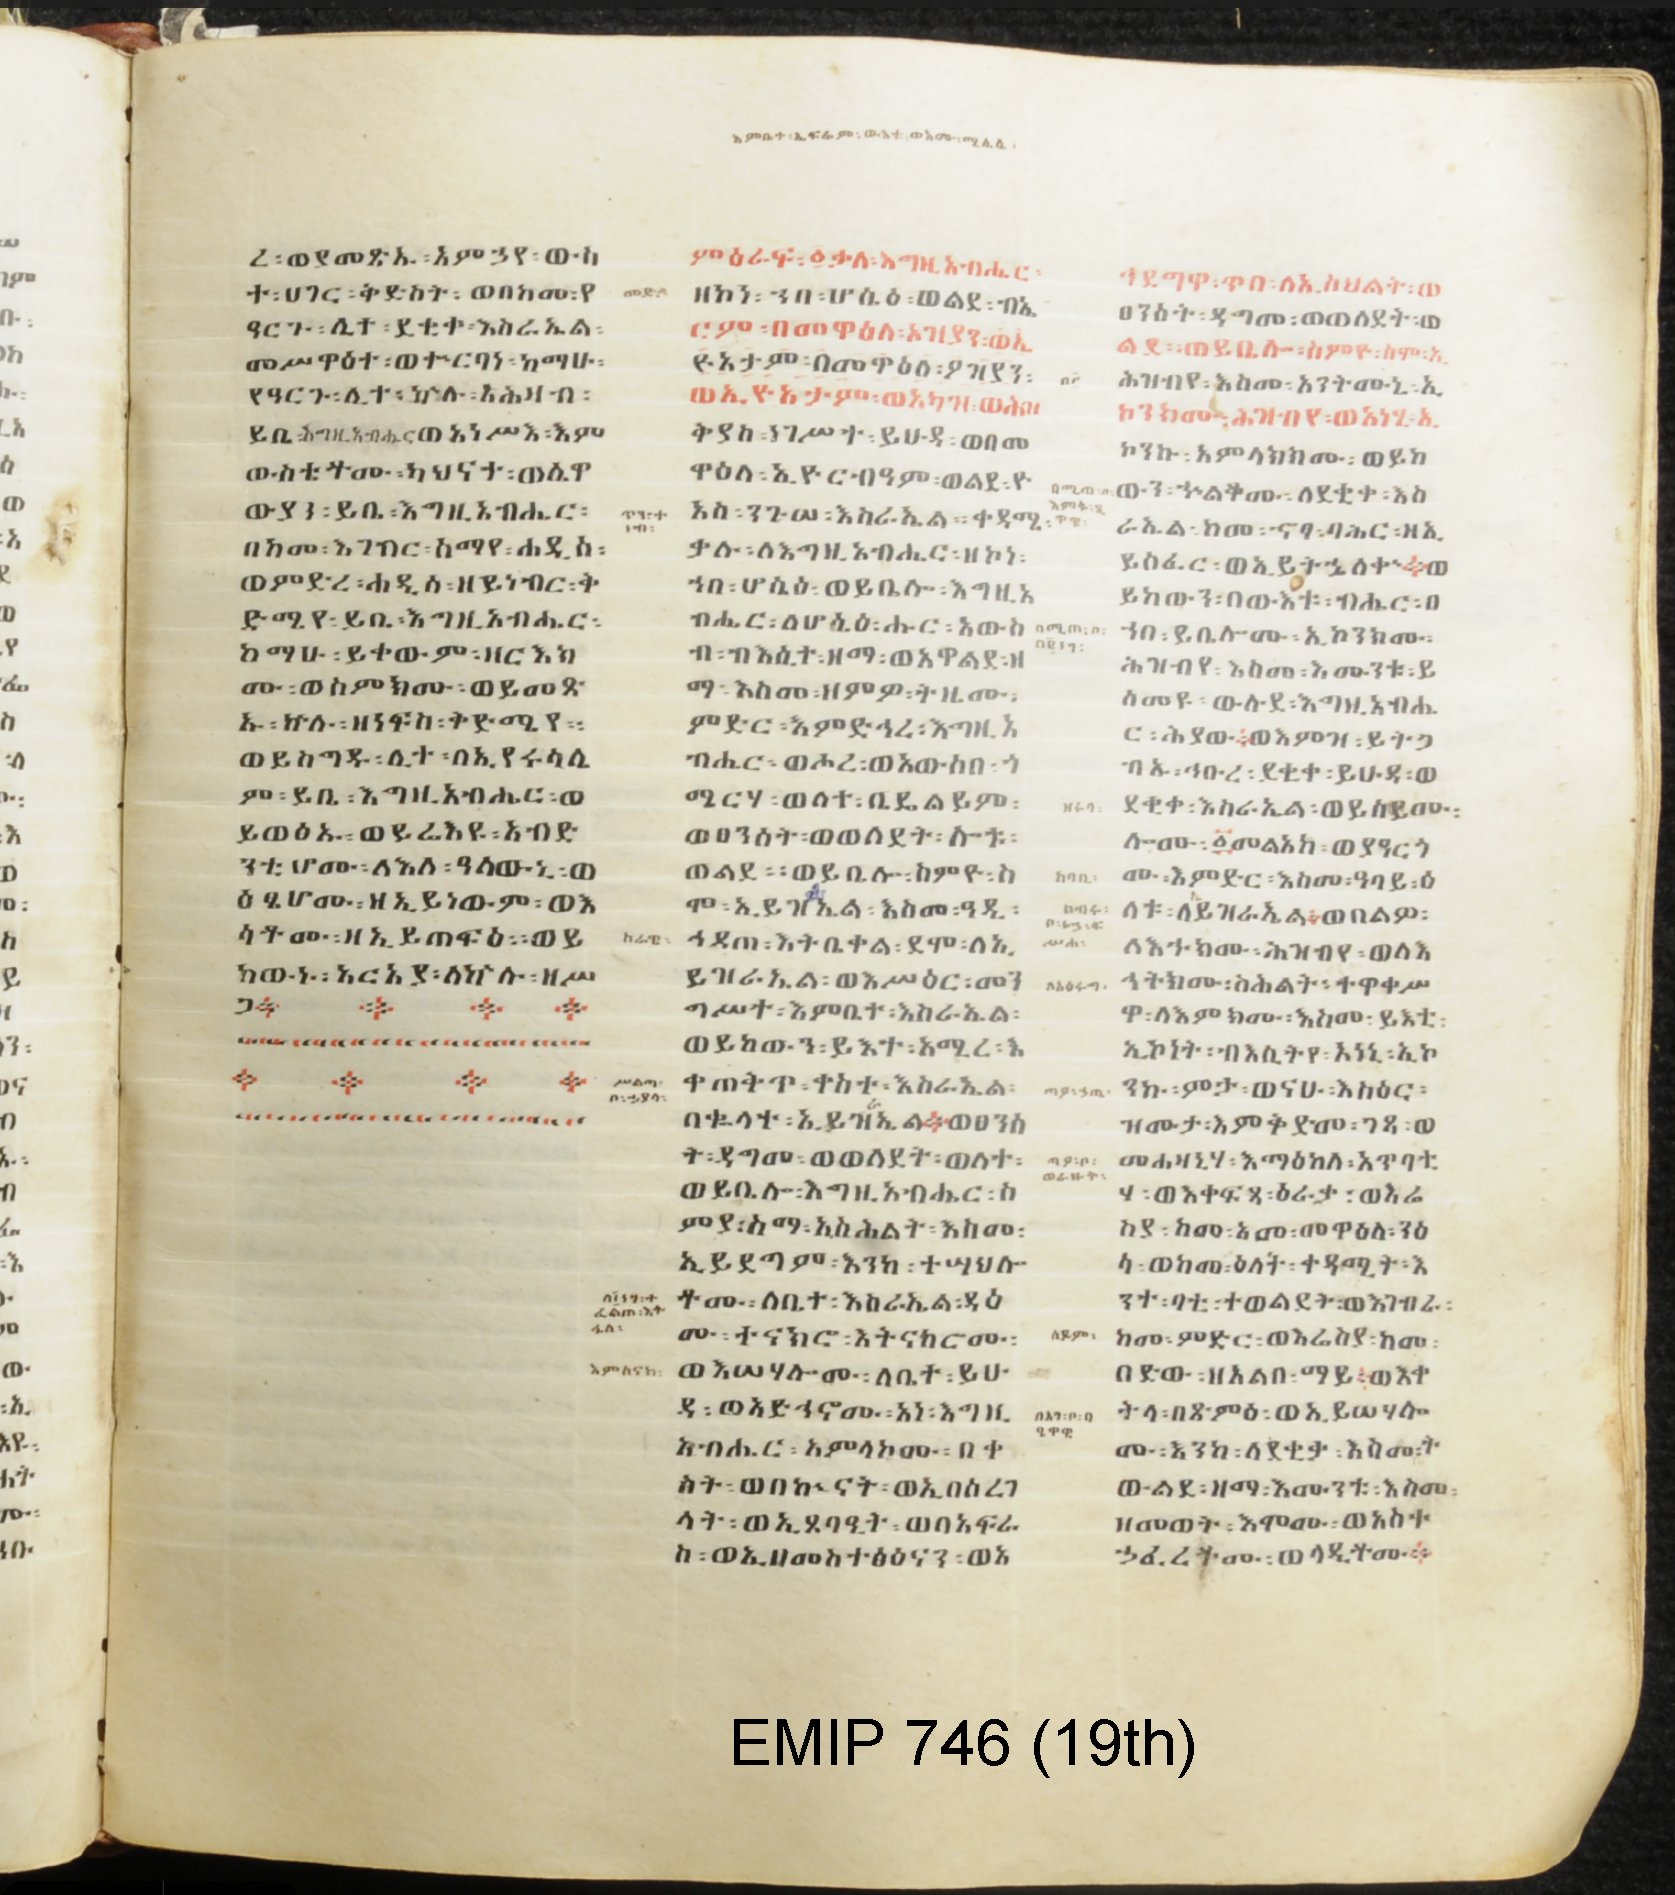 እምቤተ፡ኤፍሬም፡ውእቱ፡ወእሙ፡
ረ፡ወያመጽኡ፡እምኃየ፡ውስ
ተ፡ሀገር፡ቅድስት፡ወበከመ፡የ
ዓርጉ፡ሊተ፡ደቂቀ፡እስራኤል፡
መሥዋዕተ፡ወቍርባነ፡ከማሁ፡
የዓርጉ፡ሊተ፡ኵሉ፡አሕዛብ፡
ይቤ፡እግዚአብሔር፡ወእነሥእ፡እም
ውስቴቶሙ፡ካህናተ፡ወሌዋ
ውያን፡ይቤ፡እግዚአብሔር፡
በከመ፡እገብር፡ሰማየ፡ሐዲሰ፡
ወምድረ፡ሐዲሰ፡ዘይነብር፡ቅ
ድሜየ፡ይቤ፡እግዚአብሔር፡
ከማሁ፡ይቀውም፡ዘርእክ
ሙ፡ወስምክሙ፡ወይመጽ
እ፡ኵሉ፡ዘነፍስ፡ቅድሜየ፡፡
ወይሰግዱ፡ሊተ፡በኢየሩሳሌ
ም፡ይቤ፡እግዚአብሔር፡ወ
ይወፅኡ፡ወይሬእዩ፡አብድ
ንቲሆሙ፡ለእለ፡ዓለውኒ፡ወ
ዕፄሆሙ፡ዘኢይነውም፡ወእ
ሳቶሙ፡ዘኢይጠፍዕ፡፡ወይ
ከውኑ፡አርአያ፡ለኵሉ፡ዘሥ
ጋ
ምዕራፍ፡፩ቃለ፡እግዚአብሔር፡
ዘኮነ፡ኀበ፡ሆሴዕ፡ወልደ፡ብኤ
ርም፡በመዋዕለ፡አዝያን፡ወኢ
ዮአታም፡በመዋዕለ፡ዖዝያን፡
ወኢዮአታም፡ወአካዝ፡ወሕዝ
ቅያስ፡ነገሥተ፡ይሁዳ፡ወበመ
ዋዕለ፡ኢዮርብዓም፡ወልደ፡ዮ
አስ፡ንጉሠ፡እስራኤል፡፡ቀዳሚ፡
ቃሉ፡ለእግዚአብሔር፡ዘኮነ፡
ኀበ፡ሆሴዕ፡ወይቤሎ፡እግዚአ
ብሔር፡ለሆሴዕ፡ሑር፡አውስ
ብ፡ብእሲተ፡ዘማ፡ወአዋልደ፡ዘ
ማ፡እስመ፡ዘምዎ፡ትዚሙ፡
ምድር፡እምድኅረ፡እግዚአ
ብሔር፡ወሖረ፡ወአውሰበ፡ጎ
ሜርሃ፡ወለተ፡ቤዴልይም፡
ወፀንሰት፡ወወለደት፡ሎቱ፡
ወልደ፡፡ወይቤሎ፡ስምዮ፡ስ
ሞ፡ኢይዝኤል፡እስመ፡ዓዲ፡
ኅዳጠ፡እትቤቀል፡ደሞ፡ለኢ
ይዝራኤል፡ወእሥዕር፡መን
ግሥተ፡እምቤተ፡እስራኤል፡
ወይከውን፡ይእተ፡አሚረ፡እ
ቀጠቅጥ፡ቀስተ፡እስራኤል፡
በቈላተ፡ኢይዝኤል፡፡ወፀንሰ
ት፡ዳግመ፡ወወለደት፡ወለተ፡
ወይቤሎ፡እግዚአብሔር፡ስ
ምያ፡ስማ፡ኢስሕልት፡እስመ፡
ኢይደግም፡እንከ፡ተሣህሎ
ቶሙ፡ለቤተ፡እስራኤል፡ዳዕ
ሙ፡ተናክሮ፡እትናከሮሙ፡
ወእሠሃሎሙ፡ለቤተ፡ይሁ
ዳ፡ወአድኅኖሙ፡አነ፡እግዚ
አብሔር፡አምላኮሙ፡በቀ
ስት፡ወበኵናት፡ወኢበሰረገ
ላት፡ወኢጸባዒት፡ወበአፍራ
ስ፡ወኢዘመስተፅዕናን፡ወአ
ኀደግዋ፡ጥበ፡ለኢስህልት፡ወ
ፀንሰት፡ዳግመ፡ወወለደት፡ወ
ልደ፡፡ወይቤሎ፡ስምዮ፡ስሞ፡ኢ
ሕዝብየ፡እስመ፡አንትሙኒ፡ኢ
ኮንክሙ፡ሕዝብየ፡ወአነሂ፡ኢ
ኮንኩ፡አምላክክሙ፡ወይከ
ውን፡ኍልቆሙ፡ለደቂቀ፡እስ
ራኤል፡ከመ፡ኆፃ፡ባሕር፡ዘኢ
ይሰፈር፡ወኢይትኈለቍ፡፡ወ
ይከውን፡በውእቱ፡ብሔር፡በ
ኀበ፡ይቤሎሙ፡ኢኮንክሙ፡
ሕዝብየ፡እስመ፡እሙንቱ፡ይ
ሰመዩ፡ውሉደ፡እግዚአብሔ
ር፡ሕያው፡፡ወእምዝ፡ይትጋ
ብኡ፡ኅቡረ፡ደቂቀ፡ይሁዳ፡ወ
ደቂቀ፡እስራኤል፡ወይሰይሙ፡
ሎሙ፡፩መልአከ፡ወያዓርጎ
ሙ፡እምድር፡እስመ፡ዓባይ፡ዕ
ለቱ፡ለይዝራኤል፡፡ወበልዎ፡
ለእኁክሙ፡ሕዝብየ፡ወለእ
ኅትክሙ፡ስሕልት፡ተዋቀሥ
ዋ፡ለእምክሙ፡እስመ፡ይእቲ፡
ኢኮነት፡ብእሲትየ፡አነኒ፡ኢኮ
ንኩ፡ምታ፡ወናሁ፡እስዕር፡
ዝሙታ፡እምቅድመ፡ገጻ፡ወ
መሐዛኒሃ፡እማዕከለ፡አጥባቲ
ሃ፡ወእቀፍጻ፡ዕራቃ፡ወእሬ
ስያ፡ከመ፡አመ፡መዋዕለ፡ንዕ
ሳ፡ወከመ፡ዕለት፡ቀዳሚት፡እ
ንተ፡ባቲ፡ተወልደት፡ወእገብራ፡
ከመ፡ምድር፡ወእሬስያ፡ከመ፡
በድው፡ዘአልቦ፡ማይ፡፡ወእቀ
ትላ፡በጽምዕ፡ወኢይሠሃሎ
ሙ፡እንከ፡ለደቂቃ፡እስመ፡ት
ውልደ፡ዘማ፡እሙንቱ፡እስመ፡
ዘመወት፡እሞሙ፡ወአስተ
ኃፈረቶሙ፡ወላዲቶሙ፡፡
EMIP 746 (19th)